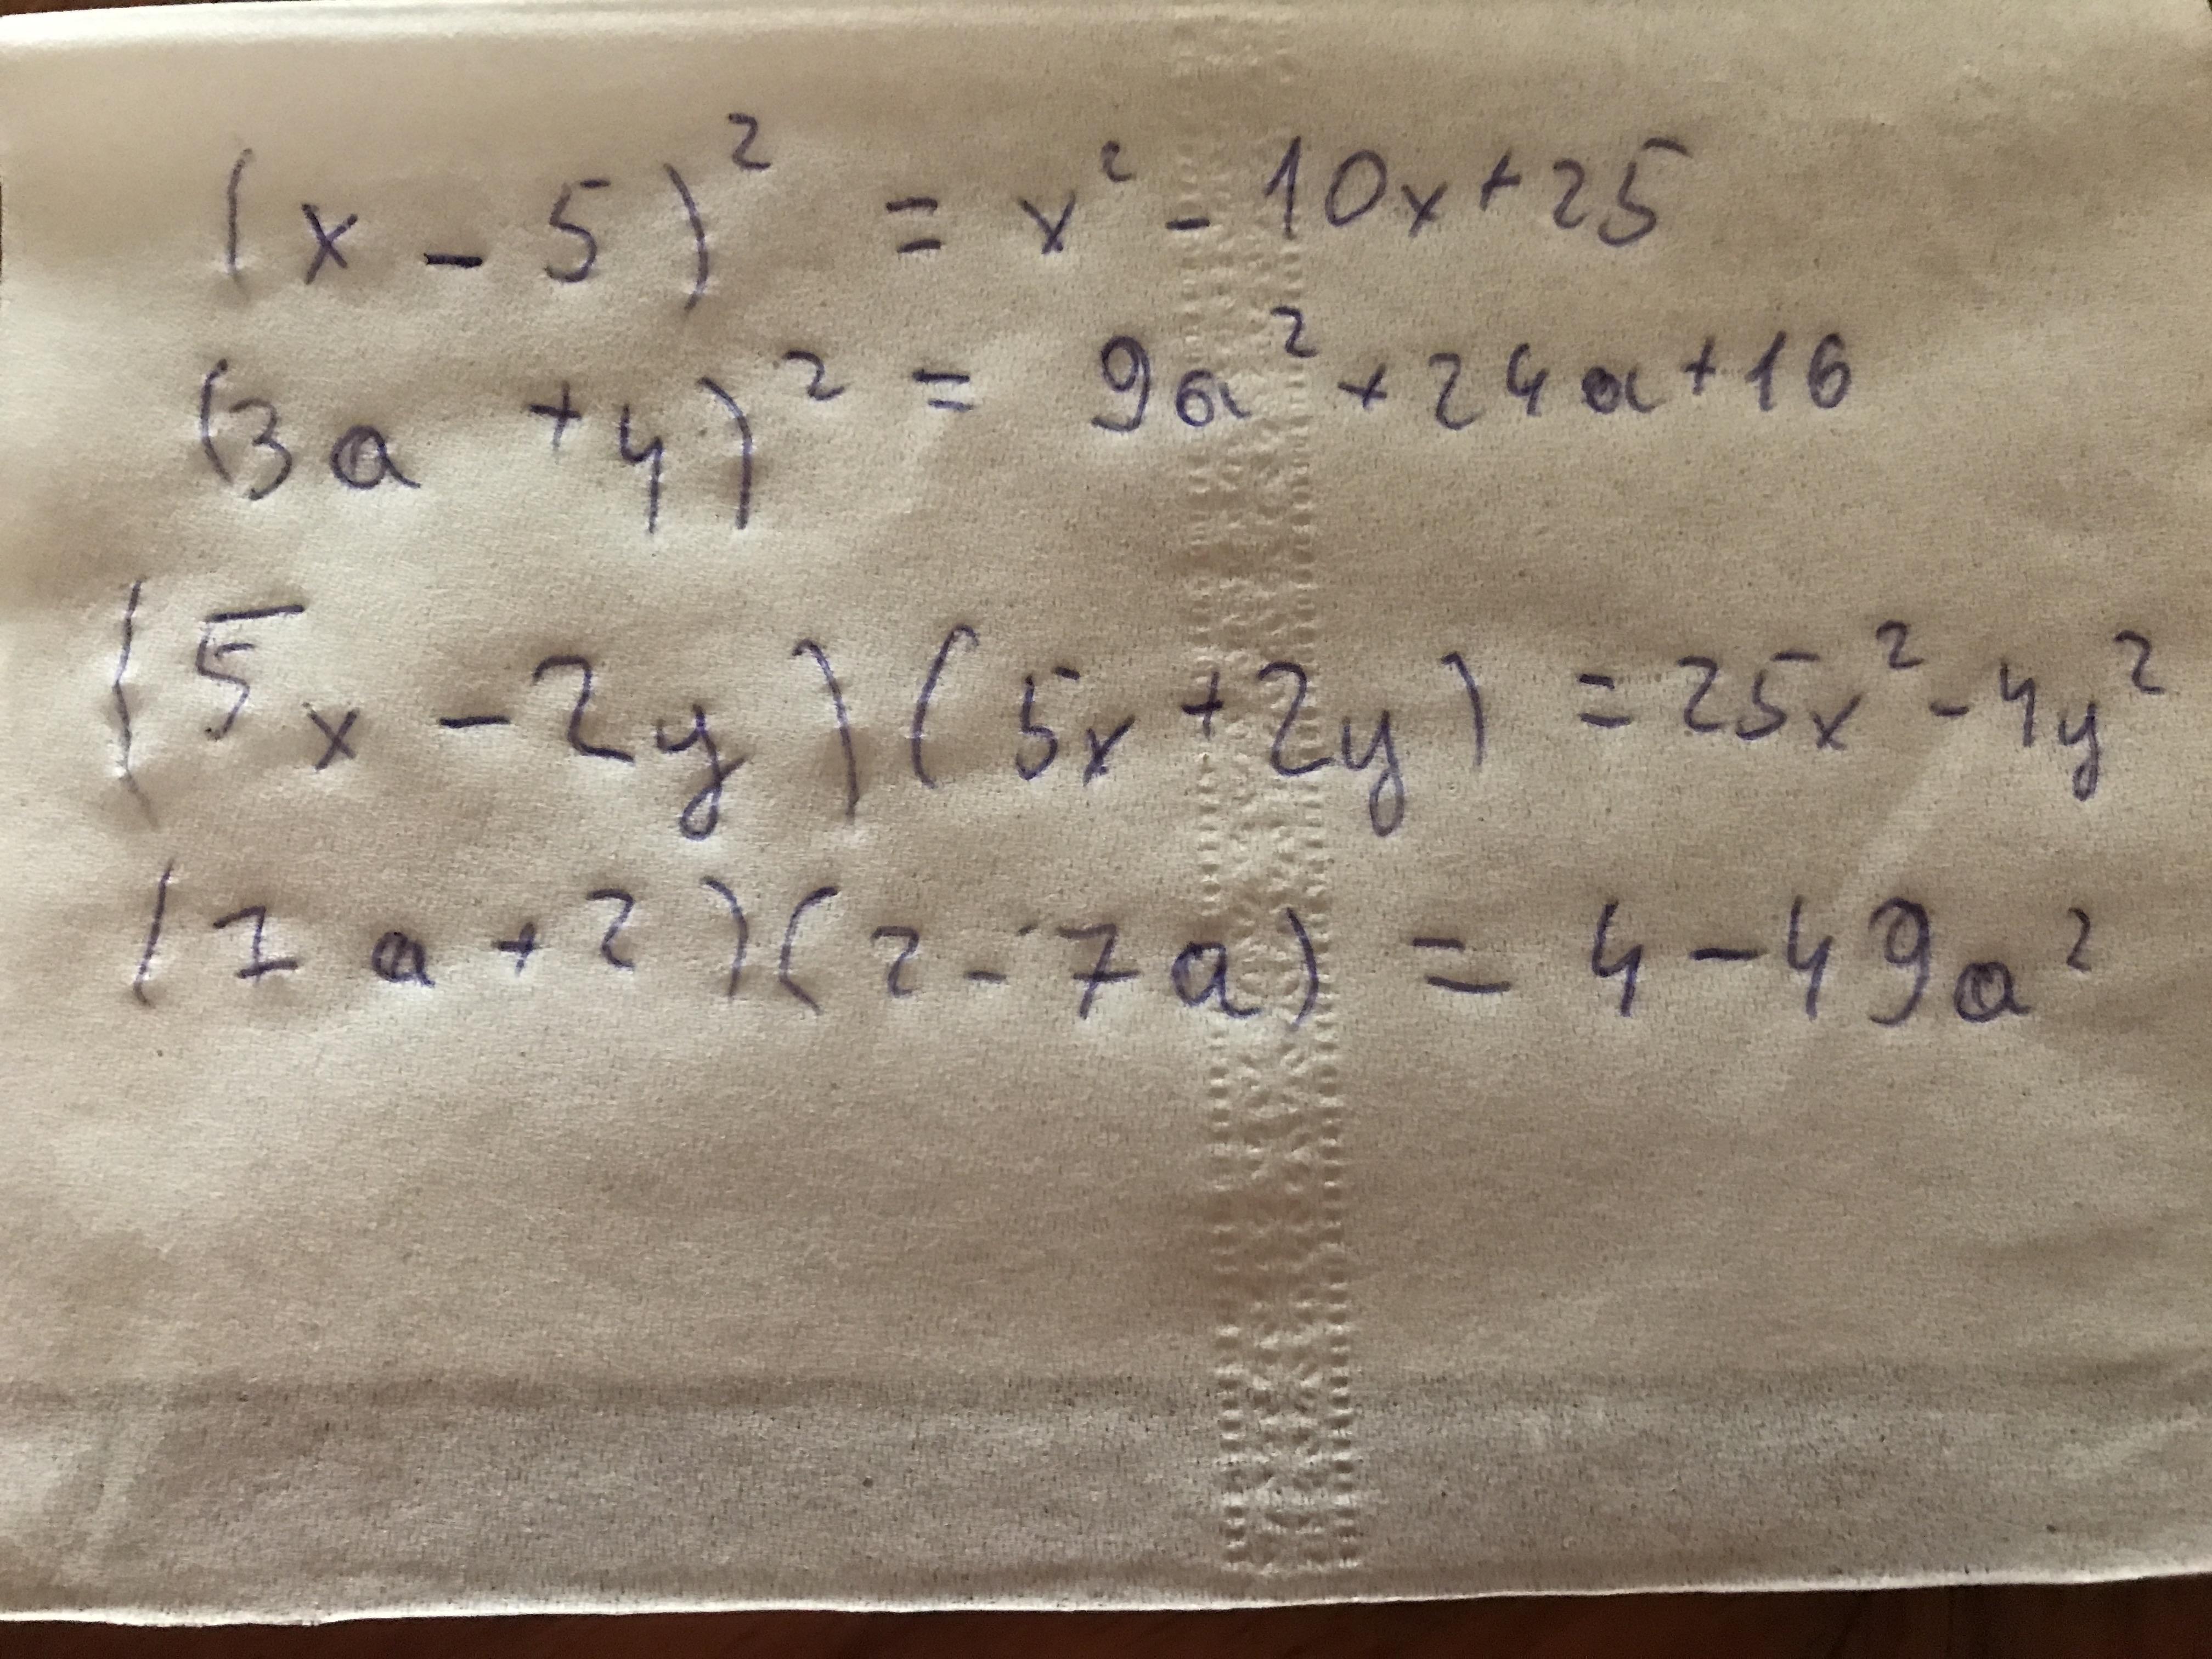 (x - 5)² = x² - 10x + 25
(3a + 4)² = 9a² + 24a + 16
(5x - 2y)(5x + 2y) = 25x² - 4y²
(7a + 2)(2 - 7a) = 4 - 49a²